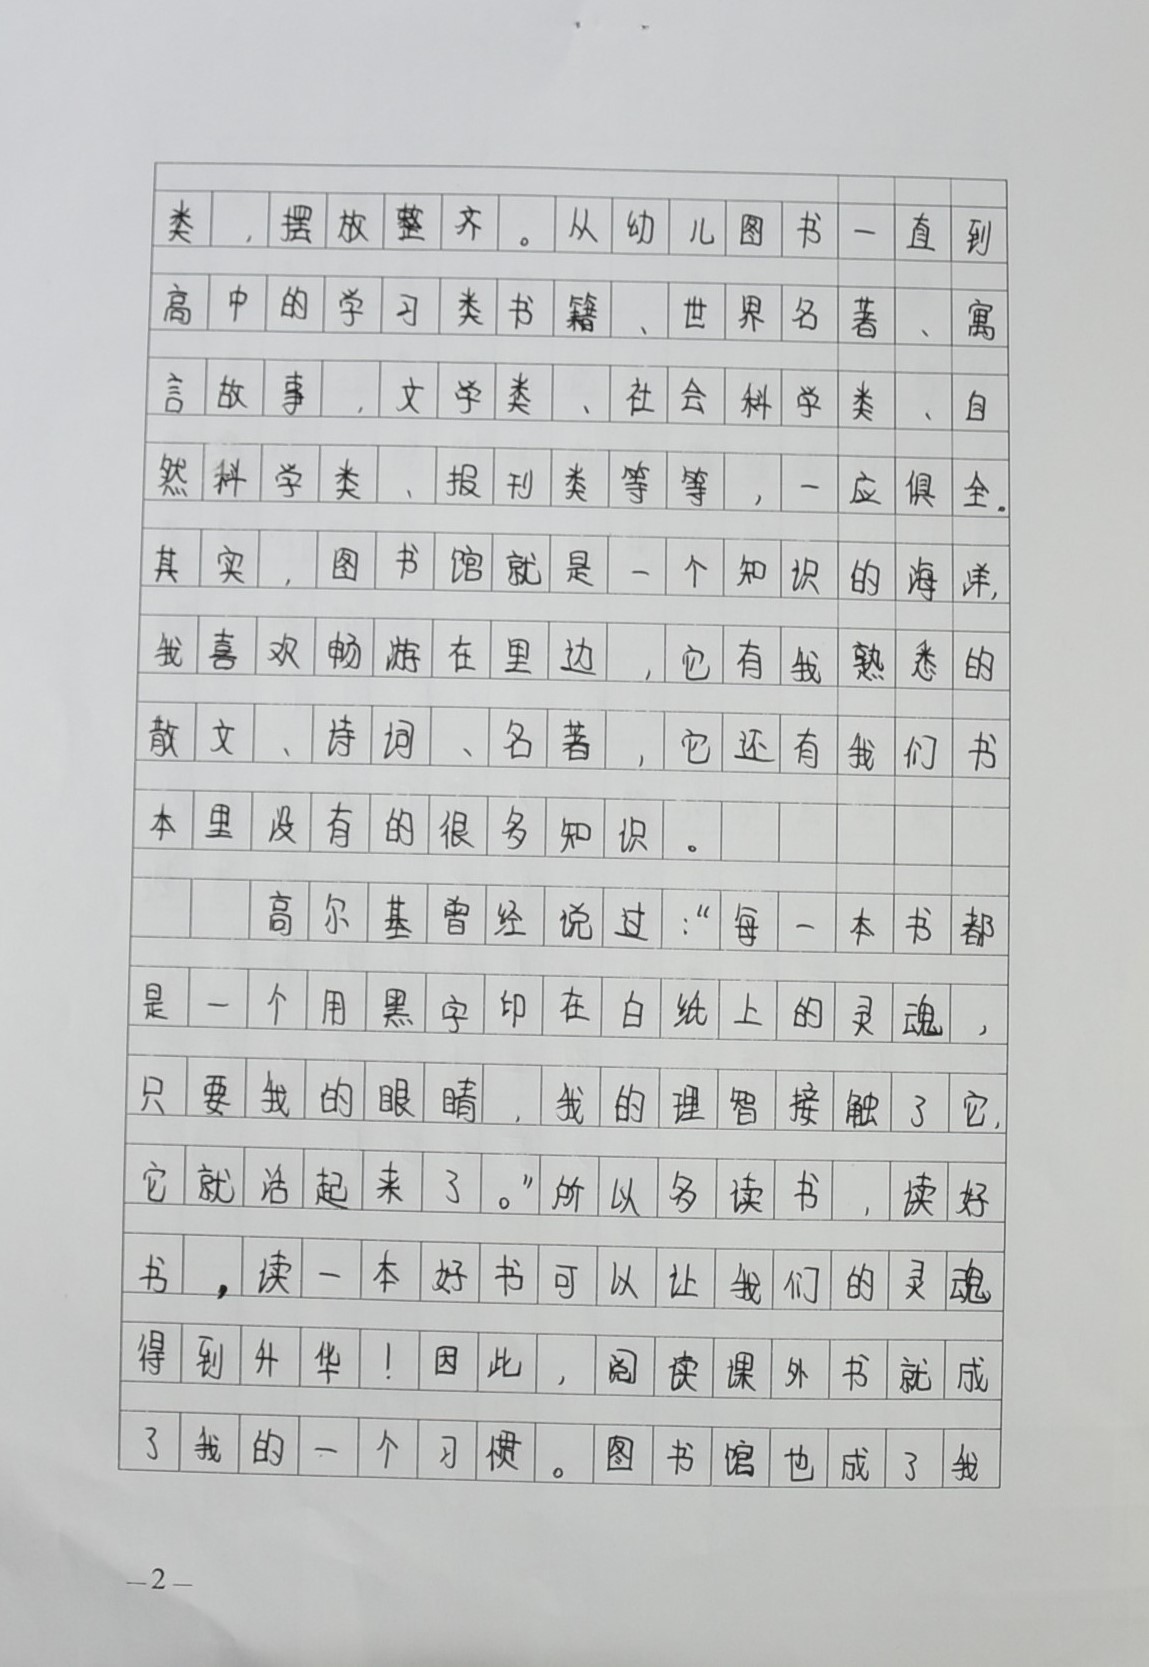 类，摆放整齐。从幼儿图书一直到
高中的学习类书籍、世界名著、寓
言故事，文学类、社会科学类、自
然科学类、报刊类等等，一应俱全。
其实，图书馆就是一个知识的海洋，
我喜欢畅游在里边，它有我熟悉的
散文、诗词、名著，它还有我们书
本里没有的很多知识。
高尔基曾经说过：“每一本书都
是一个用黑字印在白纸上的灵魂，
只要我的眼睛，我的理智接触了它，
它就活起来了。”所以多读书，读好
书，读一本好书可以让我们的灵魂
得到升华！因此，阅读课外书就成
了我的一个习惯。图书馆也成了我
—2—